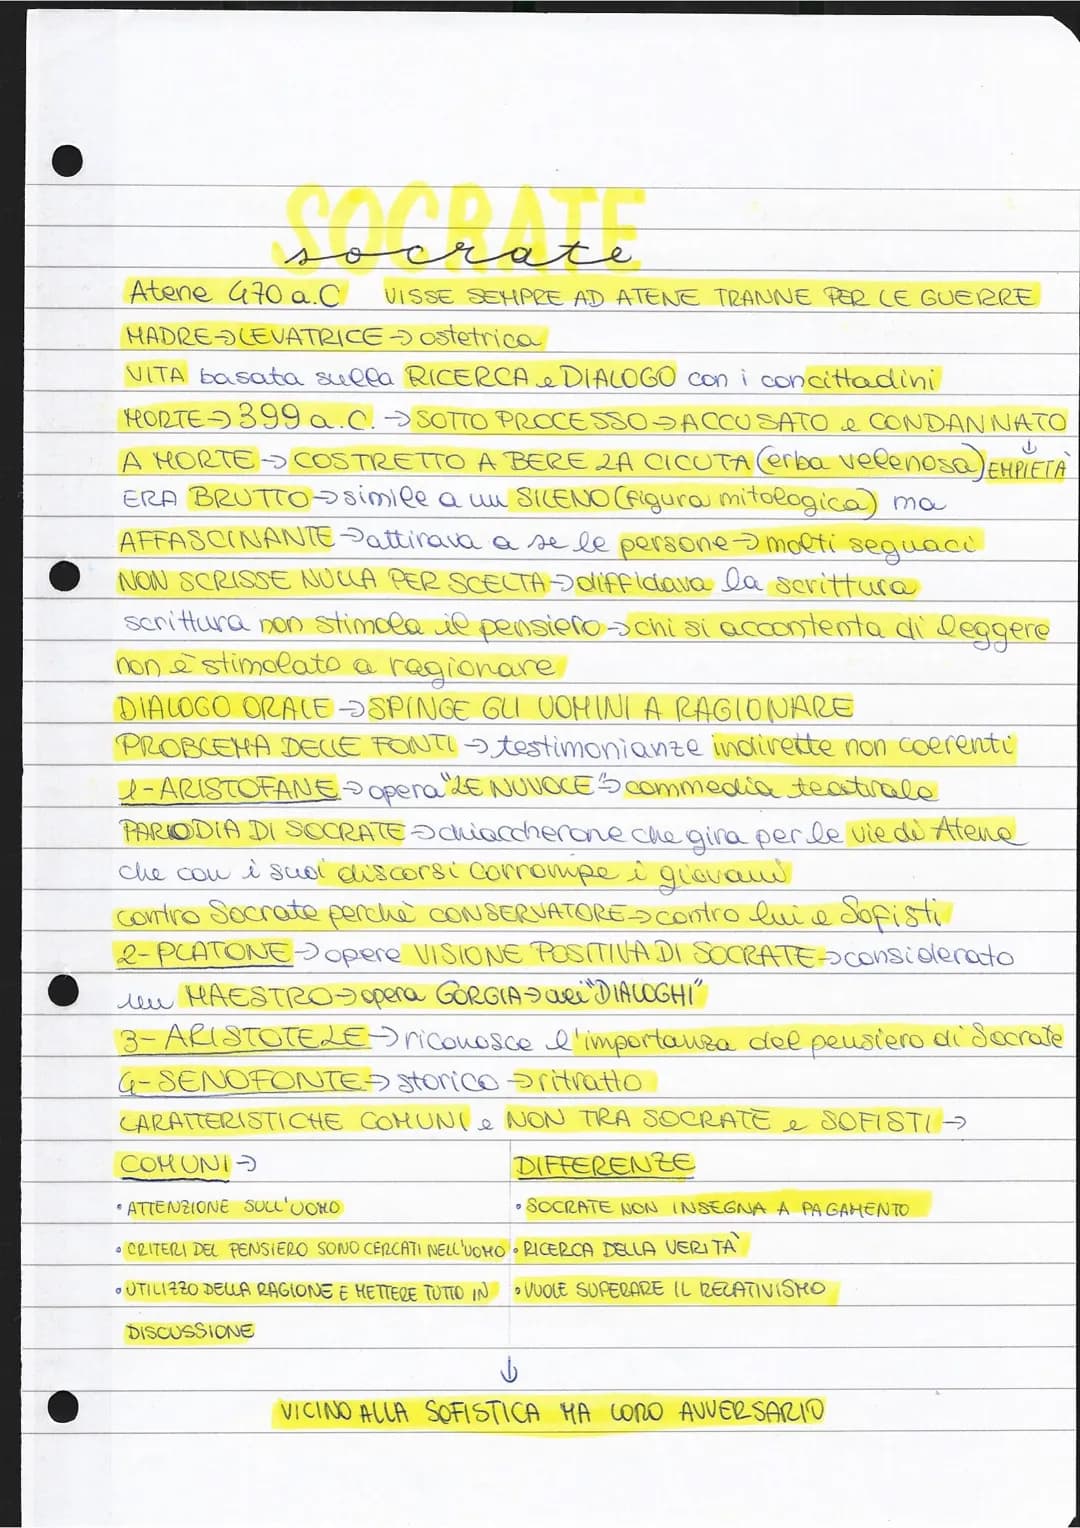 SOCRATE
socrate
Atene 470 a.C VISSE SEMPRE AD ATENE TRANNE PER LE GUERRE
MADRE→LEVATRICE→ostetrica
VITA basata sulla RICERCA e DIALOGO con i concittadini
MORTE→399 a.C.→SOTTO PROCESSO→ACCUSATO e CONDANNATO
↓
A MORTE→COSTRETTO A BERE LA CICUTA (erba velenosa) EMPIETÀ
ERA BRUTTO→simile a un SILENO (figura mitologica) ma
AFFASCINANTE→attirava a se le persone→molti seguaci
NON SCRISSE NULLA PER SCELTA→diffidava la scrittura
scrittura non stimola il pensiero→chi si accontenta di leggere
non è stimolato a ragionare
DIALOGO ORALE→SPINGE GLI UOMINI A RAGIONARE
PROBLEMA DELLE FONTI→testimonianze indirette non coerenti
1-ARISTOFANE→opera "LE NUVOLE"→commedia teatrale
PARODIA DI SOCRATE→chiaccherone che gira per le vie di Atene
che con i suoi discorsi corrompe i giovani
contro Socrate perchè CONSERVATORE→contro lui e Sofisti
2-PLATONE→opere VISIONE POSITIVA DI SOCRATE→considerato
un MAESTRO→opera GORGIA→nei "DIALOGHI"
3-ARISTOTELE→riconosce l'importanza del pensiero di Socrate
4-SENOFONTE→storico→ritratto
CARATTERISTICHE COMUNI e NON TRA SOCRATE e SOFISTI→
COMUNI→ DIFFERENZE
• ATTENZIONE SULL'UOMO • SOCRATE NON INSEGNA A PAGAMENTO
• CRITERI DEL PENSIERO SONO CERCATI NELL'UOMO • RICERCA DELLA VERITÀ
• UTILIZZO DELLA RAGIONE E METTERE TUTTO IN • VUOLE SUPERARE IL RELATIVISMO
DISCUSSIONE
↓
VICINO ALLA SOFISTICA MA LORO AVVERSARIO